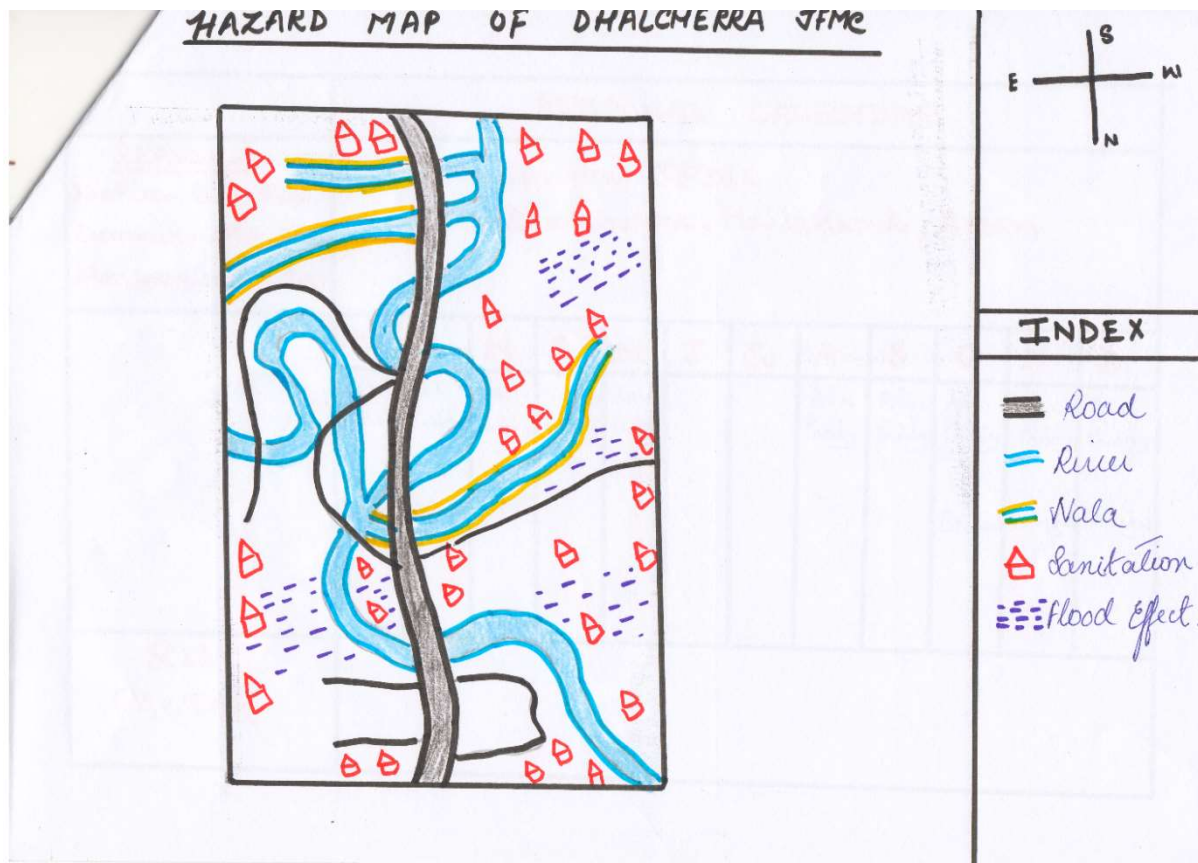 HAZARD MAP OF DHALCHERRA JFMC
S
E W
N
INDEX
Road
River
Nala
Sanitation
Flood Effect.